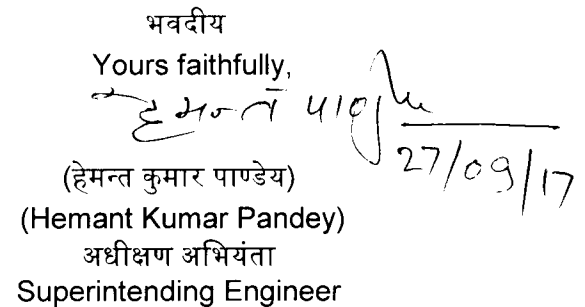 भवदीय
Yours faithfully,
हेमन्त पाण्डे
27/09/17
(हेमन्त कुमार पाण्डेय)
(Hemant Kumar Pandey)
अधीक्षण अभियंता
Superintending Engineer